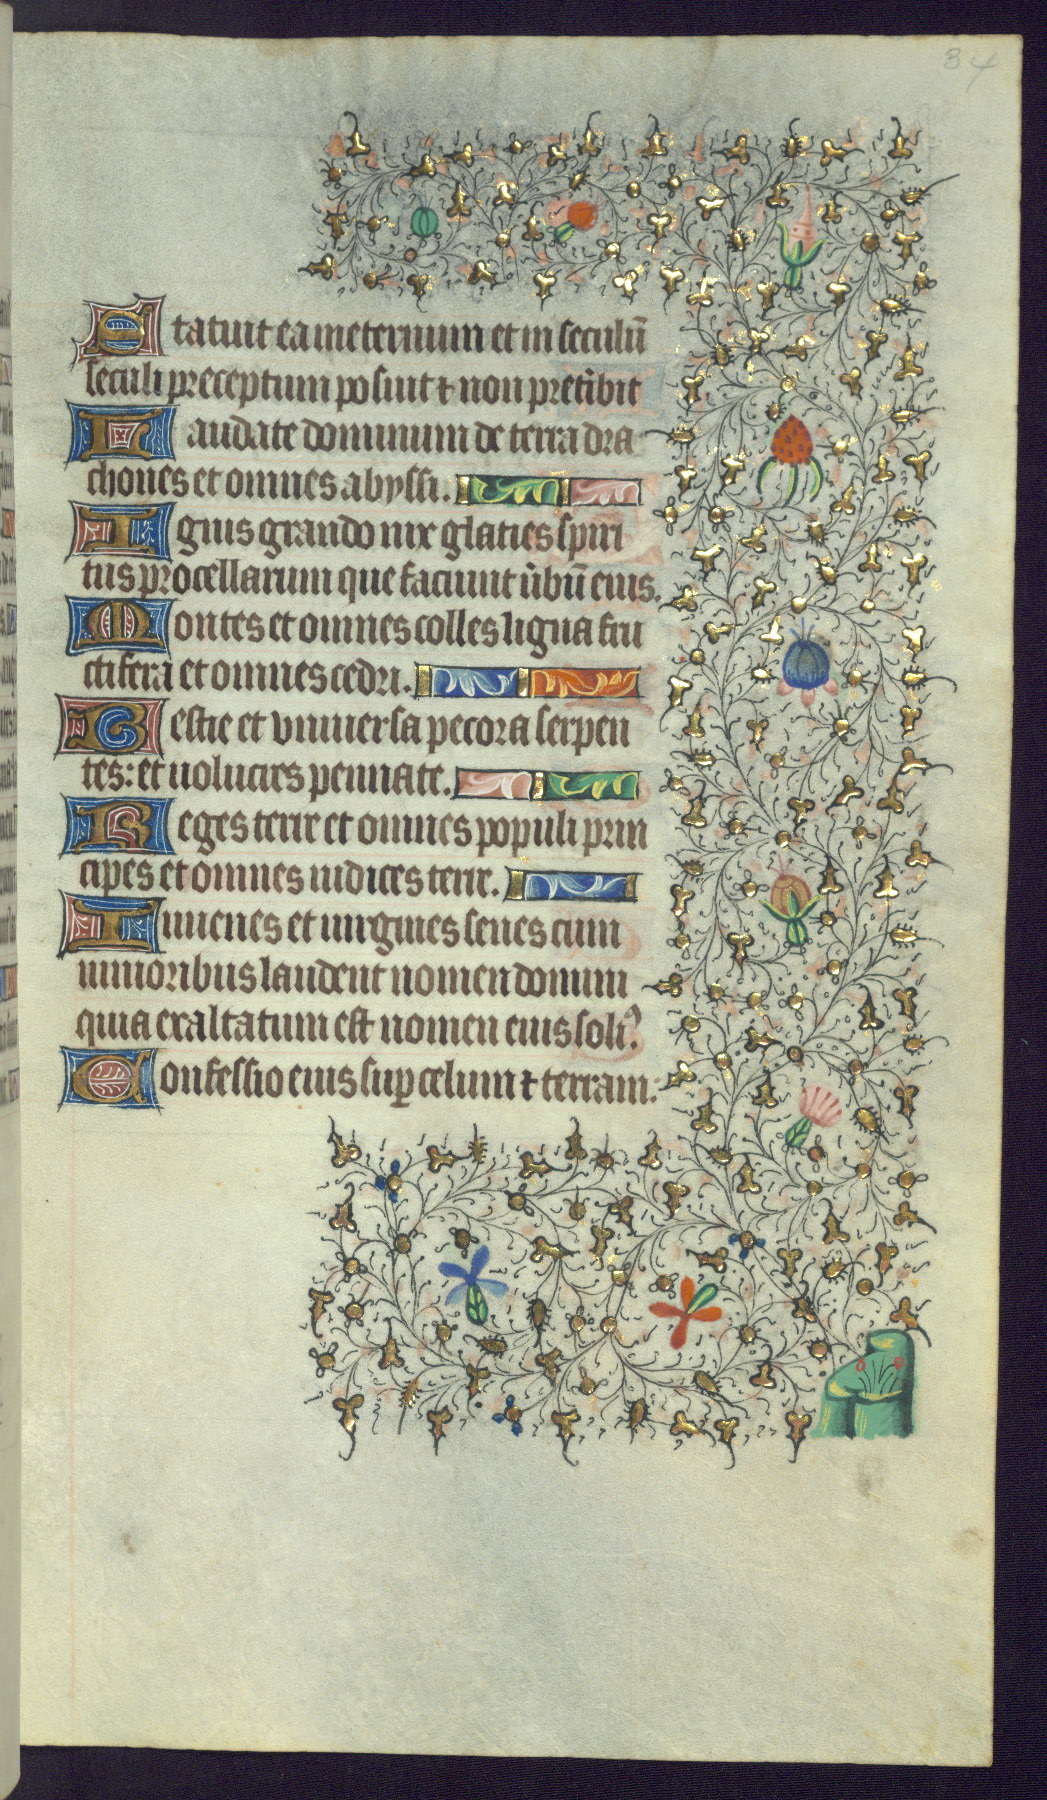 34
Statuit ea in eternum et in seculū
seculi preceptum posuit ⁊ non pret̄ibit
Laudate dominum de terra dra
chones et omnes abyssi.
Ignis grando nix glaties sp̄iri
tus procellarum que faciunt ūbū eius.
Montes et omnes colles ligna fru
ctifera et omnes cedri.
Bestie et vniuersa pecora serpen
tes: et uolucres pennate.
Reges terre et omnes populi prin
cipes et omnes iudices terre.
Iuuenes et uirgines senes cum
iunioribus laudent nomen domini
quia exaltatum est nomen eius soliꝰ.
Confessio eius suꝑ celum ⁊ terram: